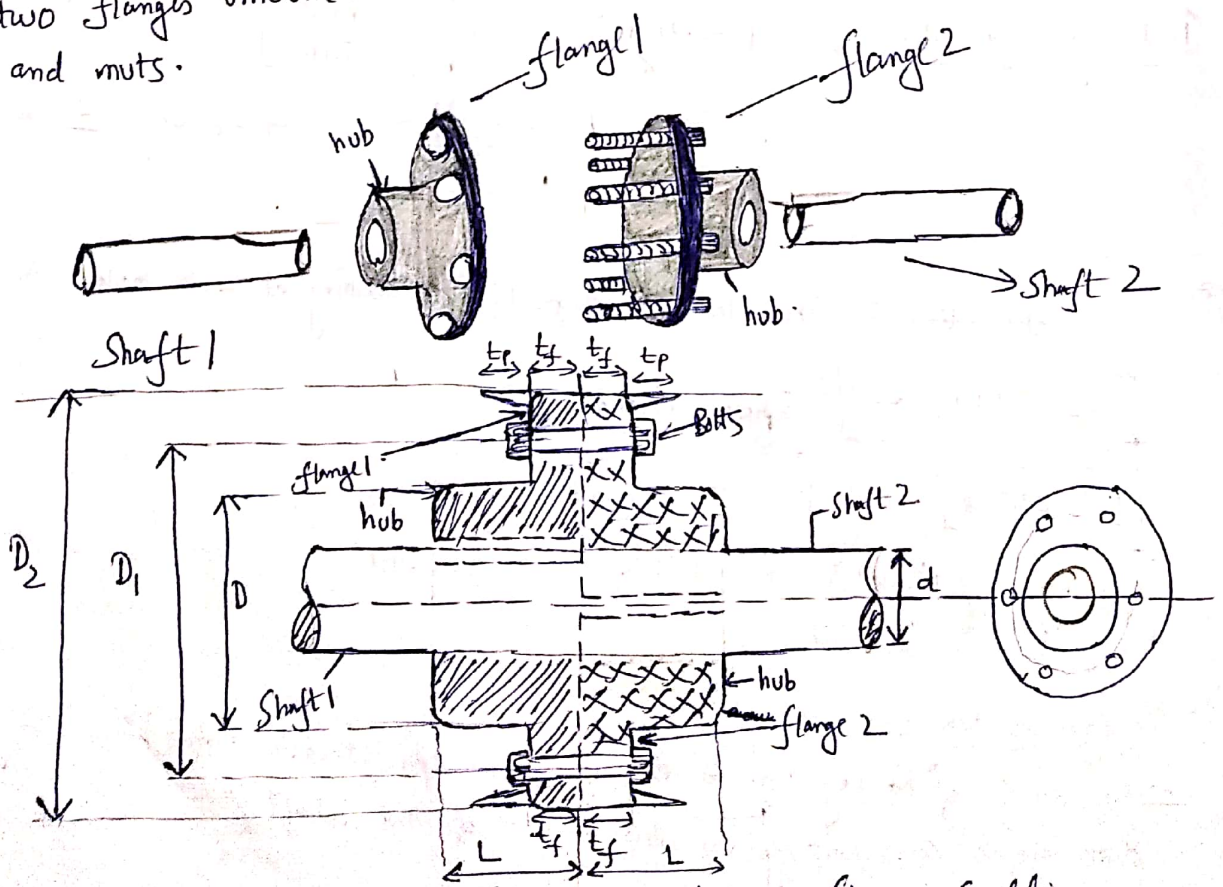 two flanges
and muts.
flange1
flange2
hub
hub.
Shaft 1
Shaft 2
tp tf tf tp
Bolts
flange1.
hub
Shaft 2
D2
D1
D
d
Shaft1
hub
flange 2
tf tf
L L